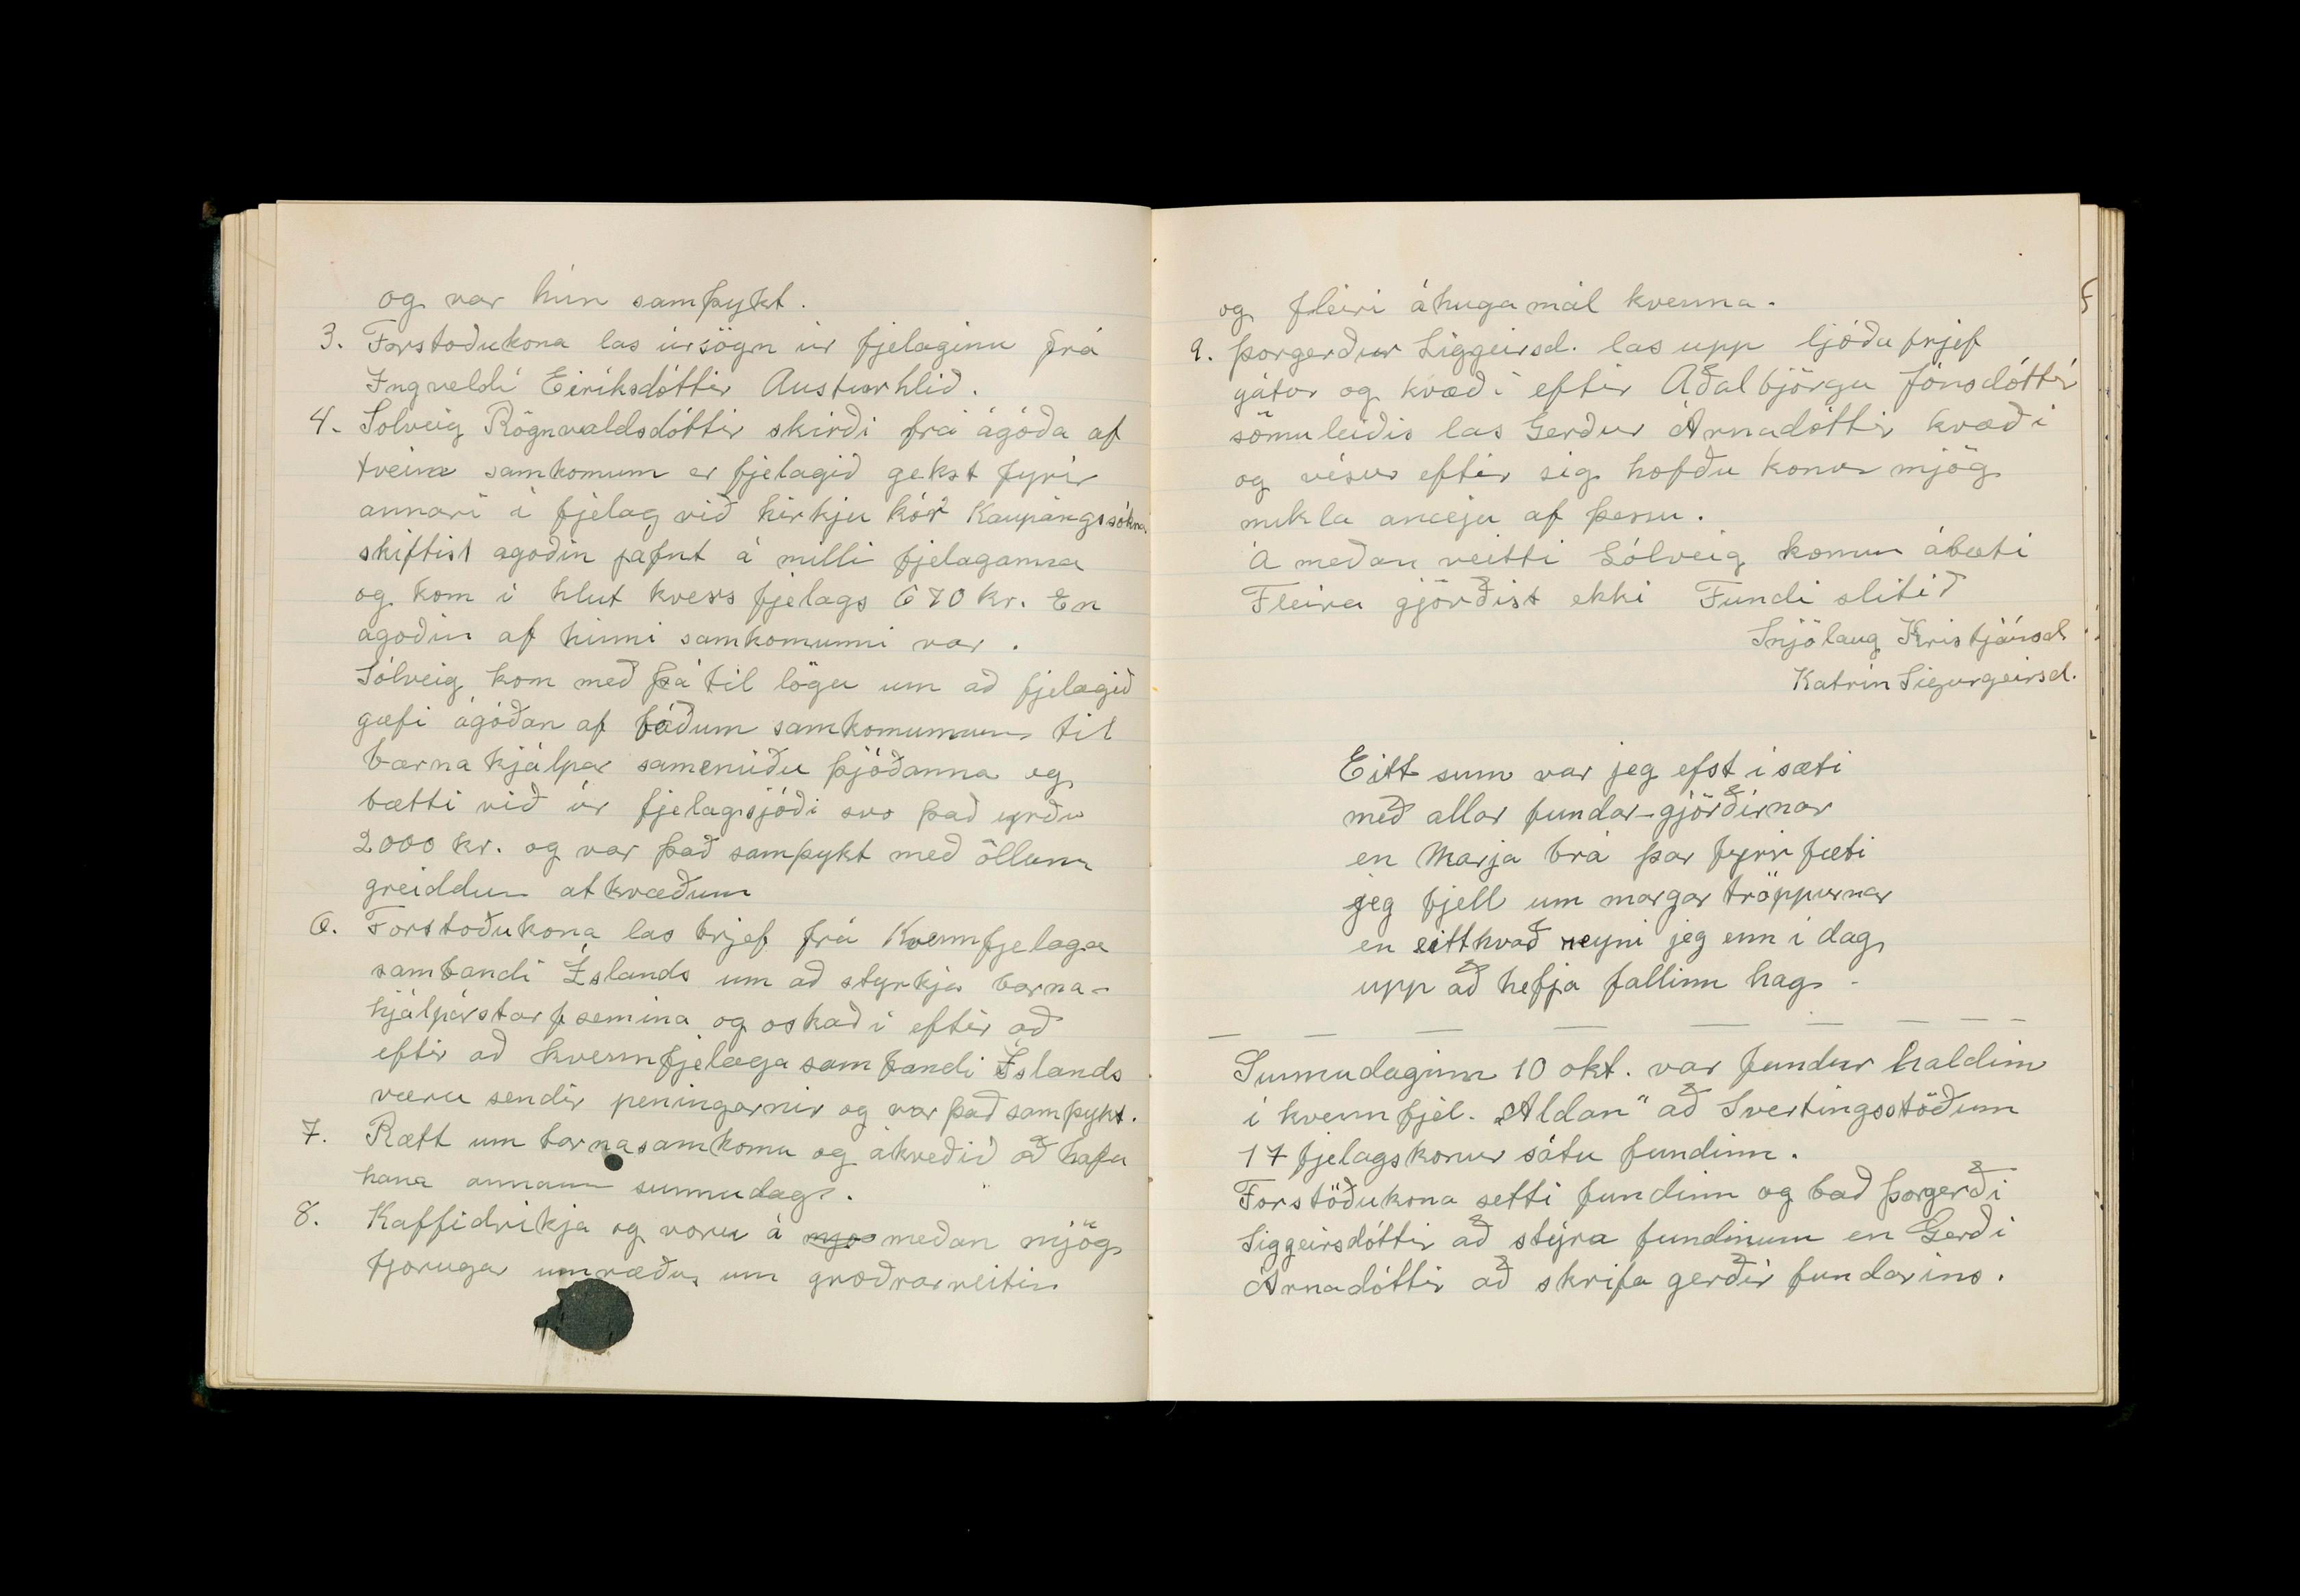 og var hún samþykt.
3. Forstoðukona las úrsögn úr fjelaginu frá
Ingveldi Eiríksdóttir Austurhlið.
4. Solveig Rögnvaldsdóttir skirði frá ágóða af
tveim samkomum er fjelagið gekst fyrir
annari i fjelag við kirkju kór Kaupángssókna
skiftist agoðin jafnt á milli fjelaganna
og kom i hlut kvers fjelags 670 kr. En
agoðin af hinni samkomunni var .
Sólveig kom með þá til lögu um að fjelagið
gæfi ágóðan af báðum samkomunum til
barna hjálpar sameniðu þjóðanna og
bætti við úr fjelagsjóði svo það yrðu
2000 kr. og var það samþykt með öllum
greiddum atkvæðum
6. Forstoðukona las brjef frá Kvennfjelaga
sambandi Íslands um að styrkja barna-
hjálparstarfsemina og oskaði eftir að
eftir að kvennfjelaga sambandi Íslands
væru sendir peningarnir og var það samþykt.
7. Rætt um barnasamkomu og ákveðið að hafa
hana annann sunnudag.
8. Kaffidrikja og voru á mjo meðan mjög
fjorugar umræður um groðrarreitin
og fleiri áhuga mál kvenna.
9. Þorgerður Siggeirsd. las upp ljóðabrjef
gátor og kvæði eftir Aðalbjörgu Jónsdóttir
sömuleiðis las Gerður Árnadóttir kvæði
og vísur eftir sig hofðu konur mjög
mikla anæju af þessu.
Á meðan veitti Sólveig konum ábæti
Fleira gjörðist ekki Fundi slitið
Snjólaug Kristjánsd.
Katrín Sigurgeirsd.
Eitt sinn var jeg efst i sæti
með allar fundar-gjörðirnar
en Marja brá þar fyrir fæti
jeg fjell um margar tröppurnar
en eitthvað reyni jeg enn i dag
upp að hefja fallinn hag.
Sunnudaginn 10 okt. var fundur haldinn
í kvennfjel. „Aldan" að Svertingsstöðum
17 fjelagskonur sátu fundinn.
Forstöðukona setti fundinn og bað Þorgerði
Siggeirsdóttir að stýra fundinum en Gerði
Árnadóttir að skrifa gerðir fundarins.